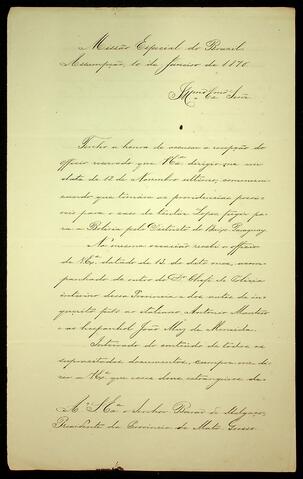 Missão Especial do Brasil
Assumpção, 10 de Janeiro de 1870
Illmo Exmo Senr
Tenho a honra de accusar a recepção do
officio reservado que V Exa dirigio-me em
data de 12 de Novembro ultimo, communi-
cando que tomára as providencias possi-
veis para o caso de tentar Lopez fugir pa-
ra a Bolivia pelo Districto do Baixo Paraguay.
Na mesma occasião recebi o officio
de V Exa datado de 13 de dito mez, acom-
panhado de outro do Dr Chefe de Policia
interino dessa Provincia e dos autos de in-
querito feito ao italiano Antonio
e ao hespanhol João de Almeida.
Inteirado do conteúdo de todos os
supracitados documentos, cumpre-me di-
zer a V Exa que esses dous estrangeiros de-
A S Exa o Senhor Barão de Melgaço,
Presidente da Provincia de Mato Grosso